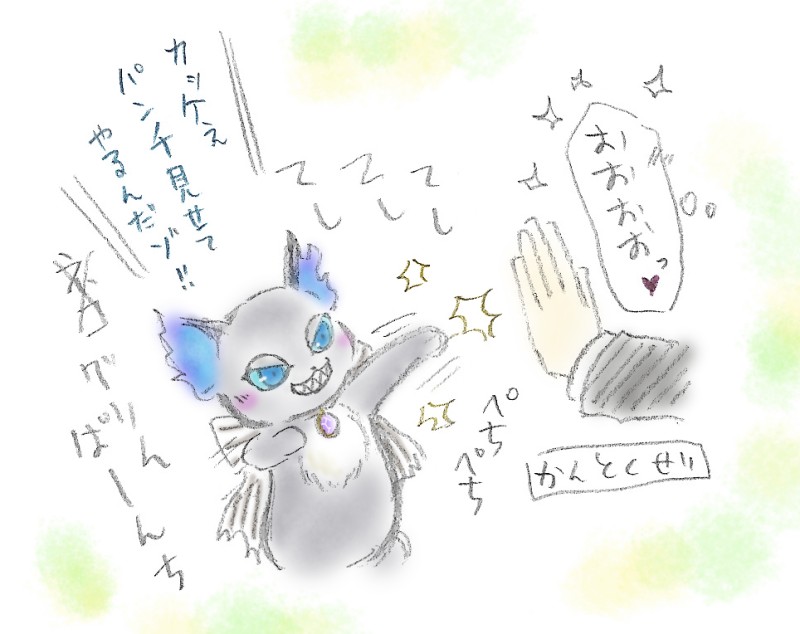 カッケぇ
パンチ見せて
やるんだゾ!!
ぐりん
ぱーんち
てし
てし
てし
おおおおっ♥
ぺち
ぺち
かんとくせい